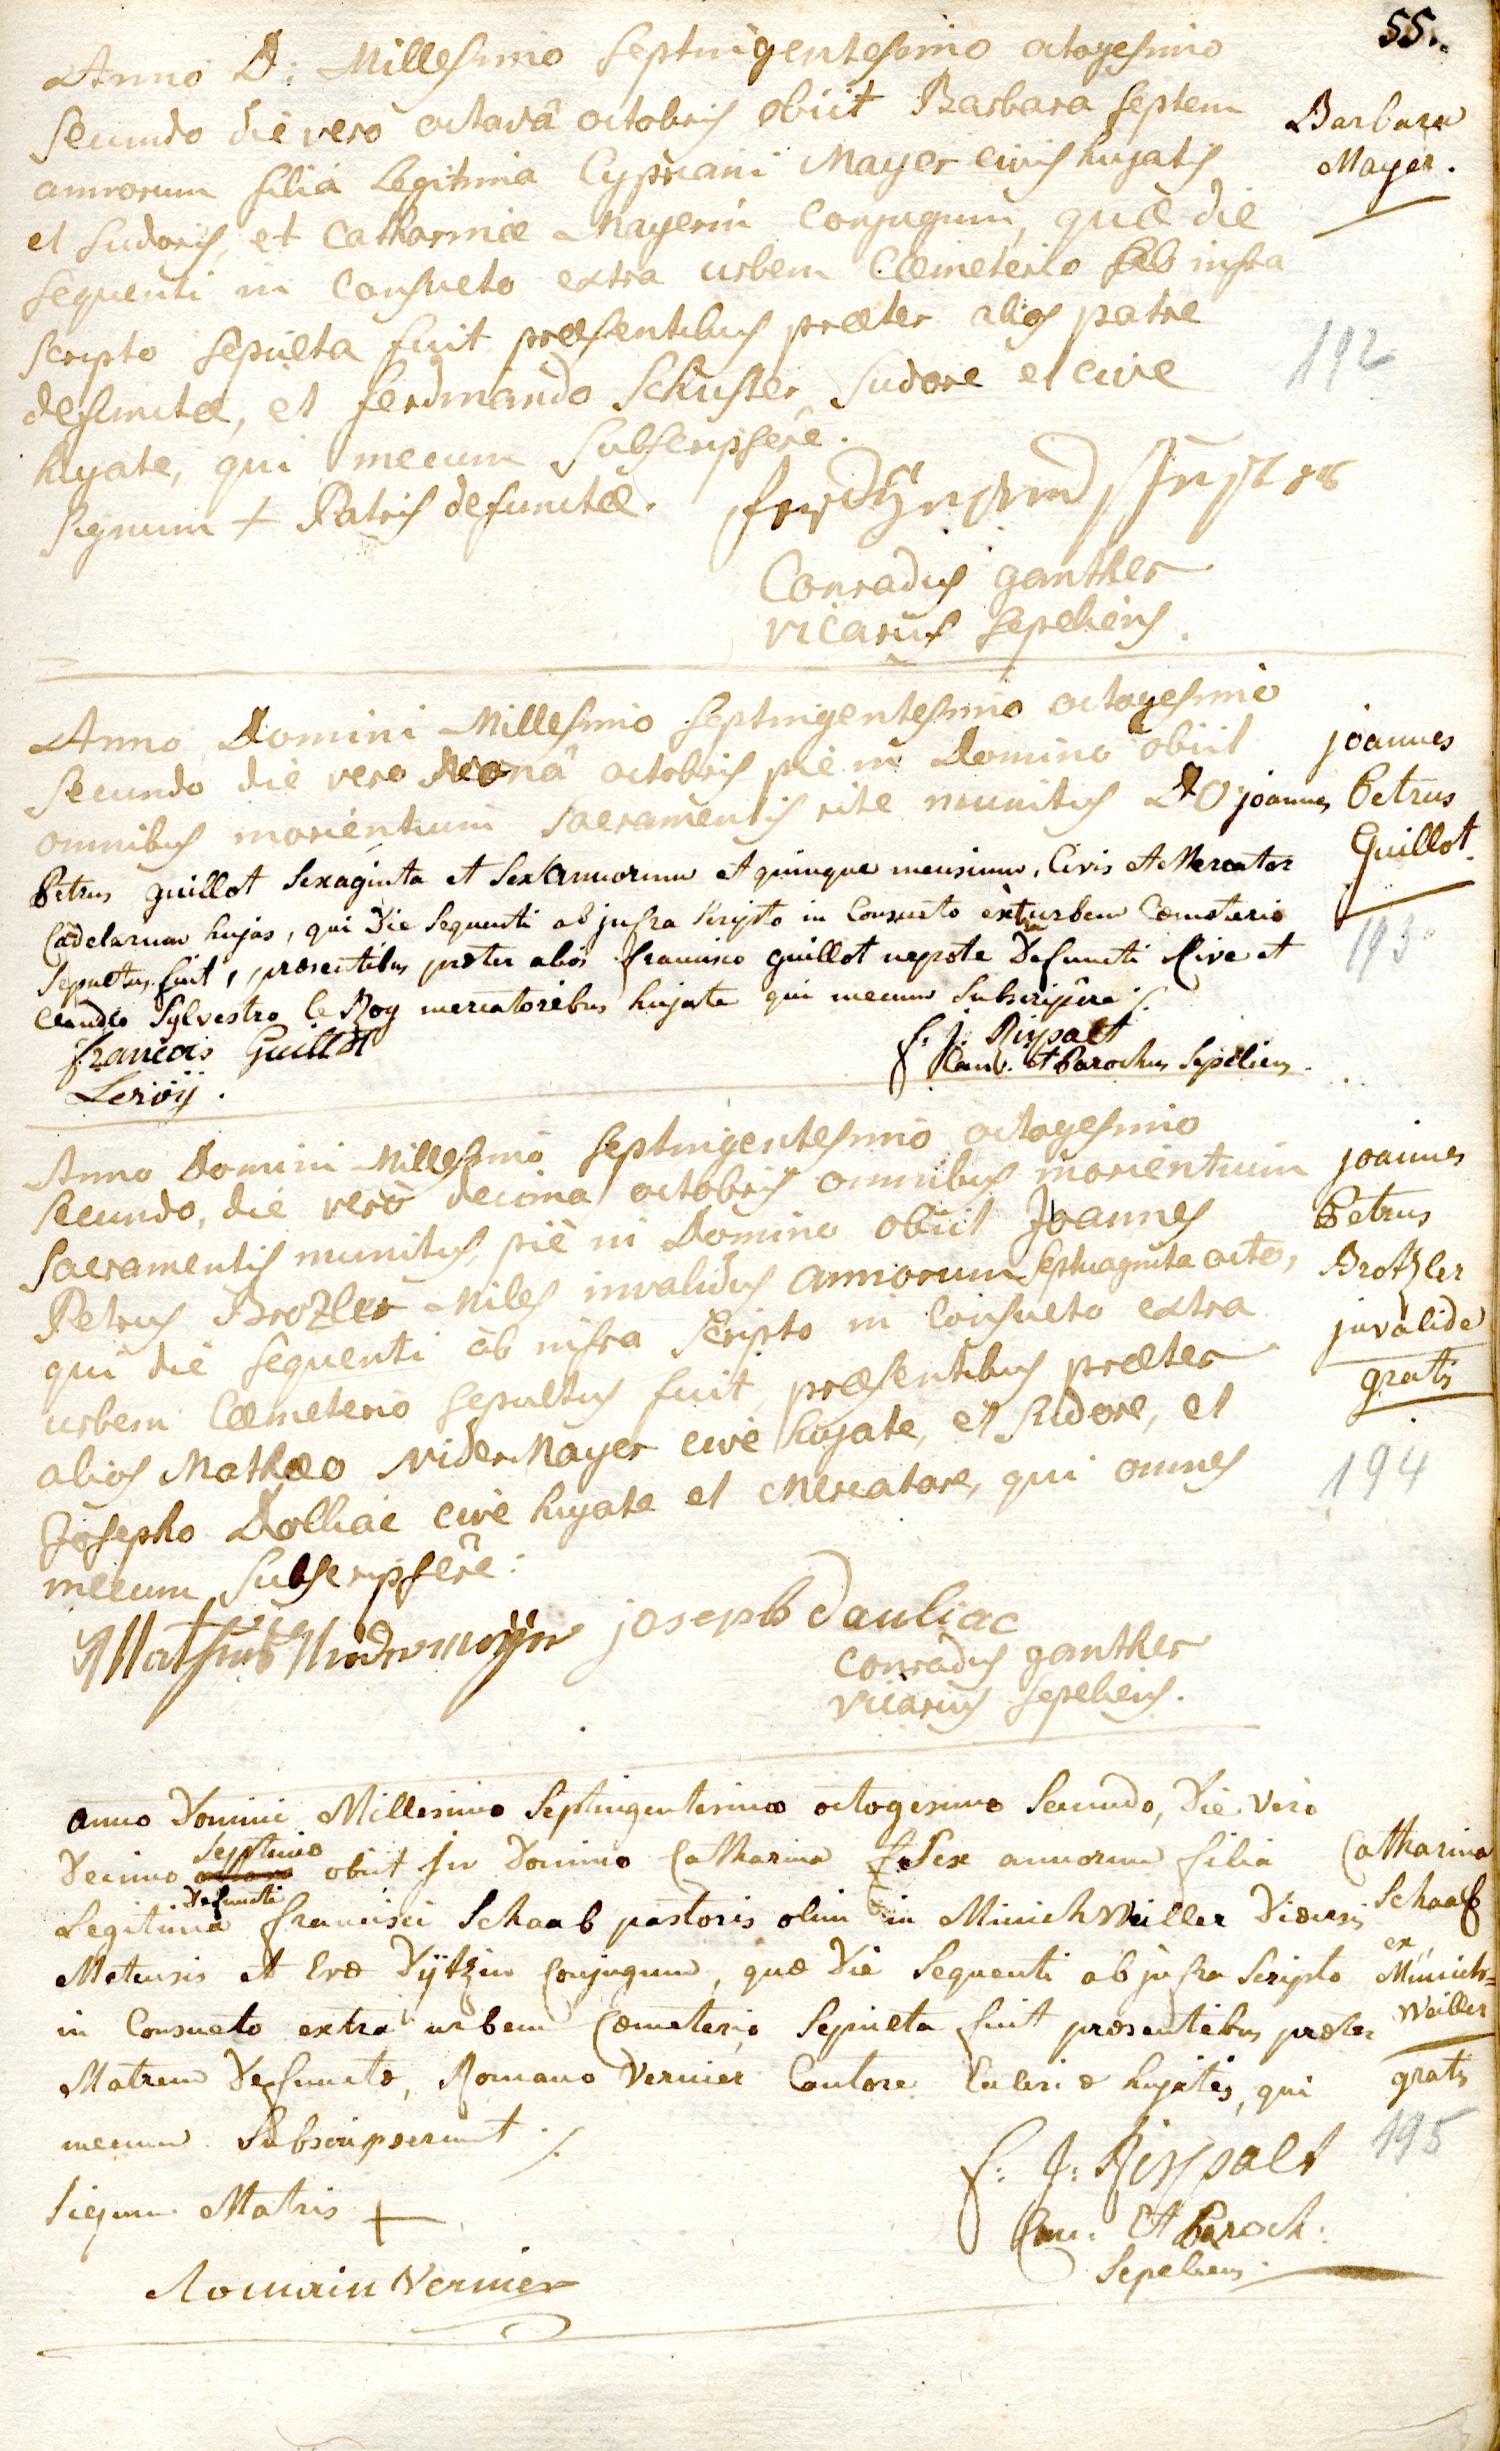 55.
Anno D: Millesimo septingentesimo octogesimo
secundo die vero octavâ octobris obiit Barbara septem
annorum filia Legitima Cypriani Mayer civis hujatis
et sudoris, et Catharinæ Mayerin conjugum, quæ die
sequenti in consueto extra urbem Cœmeterio ab infra
scripto sepulta fuit præsentibus præter alios patre
defunctæ, et ferdinando Schuster sudore et cive
hujate, qui mecum subscripserê.
Signum + Patris defunctæ.
Conradus ganther
vicarius sepeliens.
Barbara
Mayer.
192
Anno Domini Millesimo septingentesimo octogesimo
secundo die vero Nonâ octobris piè in Domino obiit
omnibus morientium sacramentis rite munitus D joannes
Petrus guillot sexaginta et sex annorum et quinque mensium, Civis et Mercator
hujas, qui die sequenti ab jnfra scripto in Consueto extra urbem Cœmeterio
Sepultus fuit, præsentibus præter alios francisco guillot nepote defuncti Cive et
Claudio Sylvestro le Roy mercatoribus hujate qui mecum subscripêre ./.
françois Guillot
Leroÿ.
f. j. Rippalt
Can. et Parochus Sepeliens.
joannes
Petrus
Guillot.
193
Anno Domini Millesimo septingentesimo octogesimo
secundo, die verò decima octobris omnibus morientium
sacramentis munitus, piè in Domino obiit Joannes
Petrus Brozler Miles invalidus annorum septuaginta octo,
qui die sequenti ab infra scripto in consueto extra
urbem Cœmeterio sepultus fuit, præsentibus præter
alios Mathæo NiderMayer cive hujate, et sudore, et
Josepho Dolliac cive hujate et Mercatore, qui omnes
mecum subscripserê:
joseph dauliac
Conradus ganther
vicarius sepeliens.
joannes
Petrus
Brotzler
jnvalide
gratis
194
anno Domini Millesimo Septingentesimo octogesimo Secundo, Die Vero
Decimo septimo obiit Jn Domino Catharina Sex annorum filia
Legitima defuncti francisci Schaab pastoris olim in MinichWeiller Diœcesis
Metensis et Evæ Dÿtzin Conjugum, quæ Die Sequenti ab jnfra Scripto
in Consueto extra urbem Cœmeterio Sepulta fuit præsentibus præter
Matrem Defunctæ, Romano Vernier Cantore hujatis, qui
mecum Subscripserunt ./.
Signum Matris +
Romain Vernier
f: J: Rippalt
Can. et Paroch.
Sepeliens.
Catharina
Schaab
ex
Minich=
Weiller
gratis
195